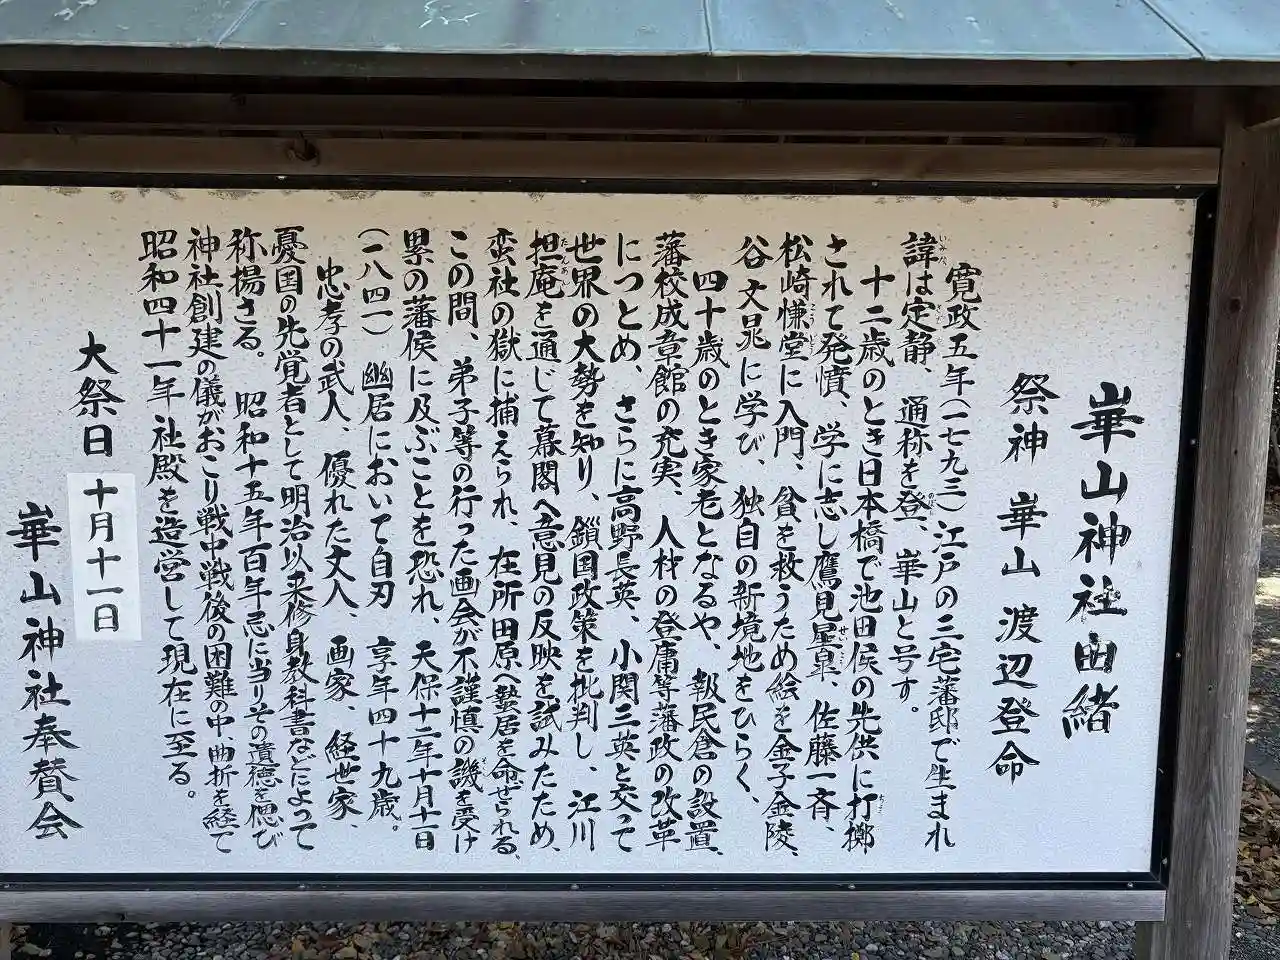 崋山神社由緒
祭神 崋山 渡辺登命
寛政五年(一七九三)江戸の三宅藩邸で生まれ
諱は定静、通称を登、崋山と号す。
十二歳のとき日本橋で池田侯の先供に打擲
されて発憤、学に志し鷹見星皐、佐藤一斉、
松崎慊堂に入門、貧を救うため絵を金子金陵、
谷文晁に学び、独自の新境地をひらく、
四十歳のとき家老となるや、報民倉の設置、
藩校成章館の充実、人材の登庸等藩政の改革
につとめ、さらに高野長英、小関三英と交って
世界の大勢を知り、鎖国政策を批判し、江川
担庵を通じて幕閣へ意見の反映を試みたため、
蛮社の獄に捕えられ、在所田原へ蟄居を命ぜられる、
この間、弟子等の行った画会が不謹慎の譏を受け
累の藩侯に及ぶことを恐れ、天保十二年十月十一日
(一八四一)幽居において自刃 享年四十九歳。
忠孝の武人、優れた文人、画家、経世家、
憂国の先覚者として明治以来修身教科書などによって
称揚さる。 昭和十五年百年忌に当りその遺徳を偲び
神社創建の儀がおこり戦中戦後の困難の中、曲折を経て
昭和四十一年社殿を造営して現在に至る。
大祭日 十月十一日
崋山神社奉賛会